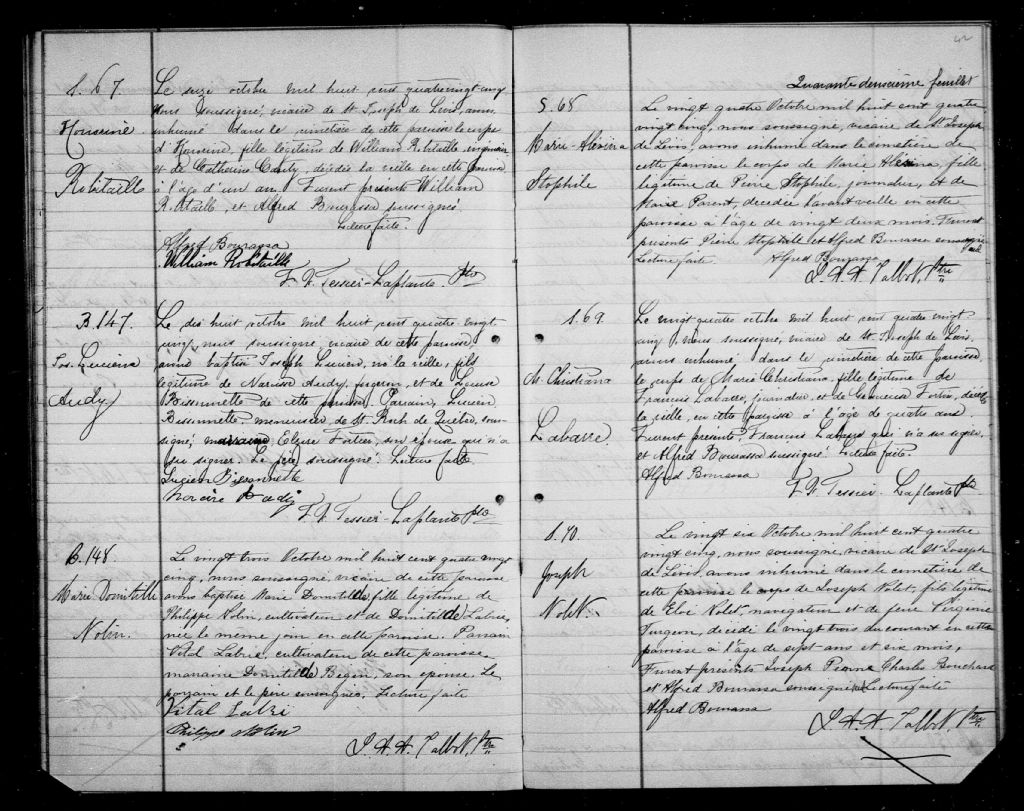 S. 67.
Honseine
Robitaille
Le seize octobre mil huit cent quatrevingt cinq
nous soussigné, vicaire de St Joseph de Levis, avons
inhumé dans le cimetière de cette paroisse le corps
d'Honseine, fille légitime de William Robitaille,
et de Catherine décédée la veille en cette paroisse
à l'âge d'un an. Furent présents William
Robitaille, et Alfred Bourassa soussignés.
Lecture faite.
Alfred Bourassa
William Robitaille
F. X. Tessier-Laplante Ptre
B. 147.
Jos. Lucien
Audy
Le dix huit octobre mil huit cent quatre-vingt
cinq, nous soussigné, vicaire de cette paroisse,
avons baptisé Joseph Lucien, né la veille, fils
légitime de Narcisse Audy, forgeron, et de Louise
Bissonnette de cette paroisse. Parrain, Lucien
Bissonnette, menuisier, de St. Roch de Québec, sous-
signé; marraine, Elzire Fortier, son épouse qui n'a
su signer. Le père soussigné. Lecture faite
Lucien Bissonnette
F. X. Tessier-Laplante ptre
B. 148.
Marie Domitille
Nolin.
Le vingt trois Octobre mil huit cent quatre vingt
cinq, nous soussigné, vicaire de cette paroisse
avons baptisé Marie Domitilde, fille légitime de
Philippe Nolin, cultivateur et de Domitilde Labrie,
née le même jour en cette paroisse. Parrain
Vital Labrie, cultivateur de cette paroisse
marraine Domitilde Begin, son épouse. Le
parrain et le père soussignés, Lecture faite
Vital Labri
Philippe Nolin
L. A. A. Talbot, Ptre
42
Quarante deuxième feuillet
S. 68
Marie-Alexina
Stophile
Le vingt quatre Octobre mil huit cent quatre
vingt cinq, nous soussigné, vicaire de St Joseph
de Levis, avons inhumé dans le cimetière de
cette paroisse le corps de Marie Alexina, fille
légitime de Pierre Stophile, journalier, et de
Marie Parent, décédée l'avant veille en cette
paroisse à l'âge de vingt deux mois. Furent
présents Pierre Stophile et Alfred Bourassa soussigné
Lecture faite. Alfred Bourassa
L. A. A. Talbot, Ptre
S. 69.
M. Christiana
Labarre.
Le vingt quatre octobre mil huit cent quatre vingt
cinq, nous soussigné, vicaire de St. Joseph de Levis,
avons inhumé dans le cimetière de cette paroisse
le corps de Marie Christiana, fille légitime de
Francois Labarre, journalier, et de Genevieve Fortin, décédée
la veille, en cette paroisse à l'âge de quatre ans.
Furent présents, Francois Labarre qui n'a su signer,
et Alfred Bourassa soussigné. Lecture faite.
Alfred Bourassa
F. X. Tessier-Laplante Ptre
S. 70.
Joseph
Nolet.
Le vingt six Octobre mil huit cent quatre
vingt cinq, nous soussigné, vicaire de St Joseph
de Lévis, avons inhumé dans le cimetière de
cette paroisse le corps de Joseph Nolet, fils légitime
de Eloi Nolet, navigateur et de feue Virginie
Turgeon, décédé le vingt trois du courant en cette
paroisse à l'âge de sept ans et six mois,
Furent présents Joseph Pierre Charles Bouchard
et Alfred Bourassa soussignés Lecture faite
Alfred Bourassa
L. A. A. Talbot, Ptre